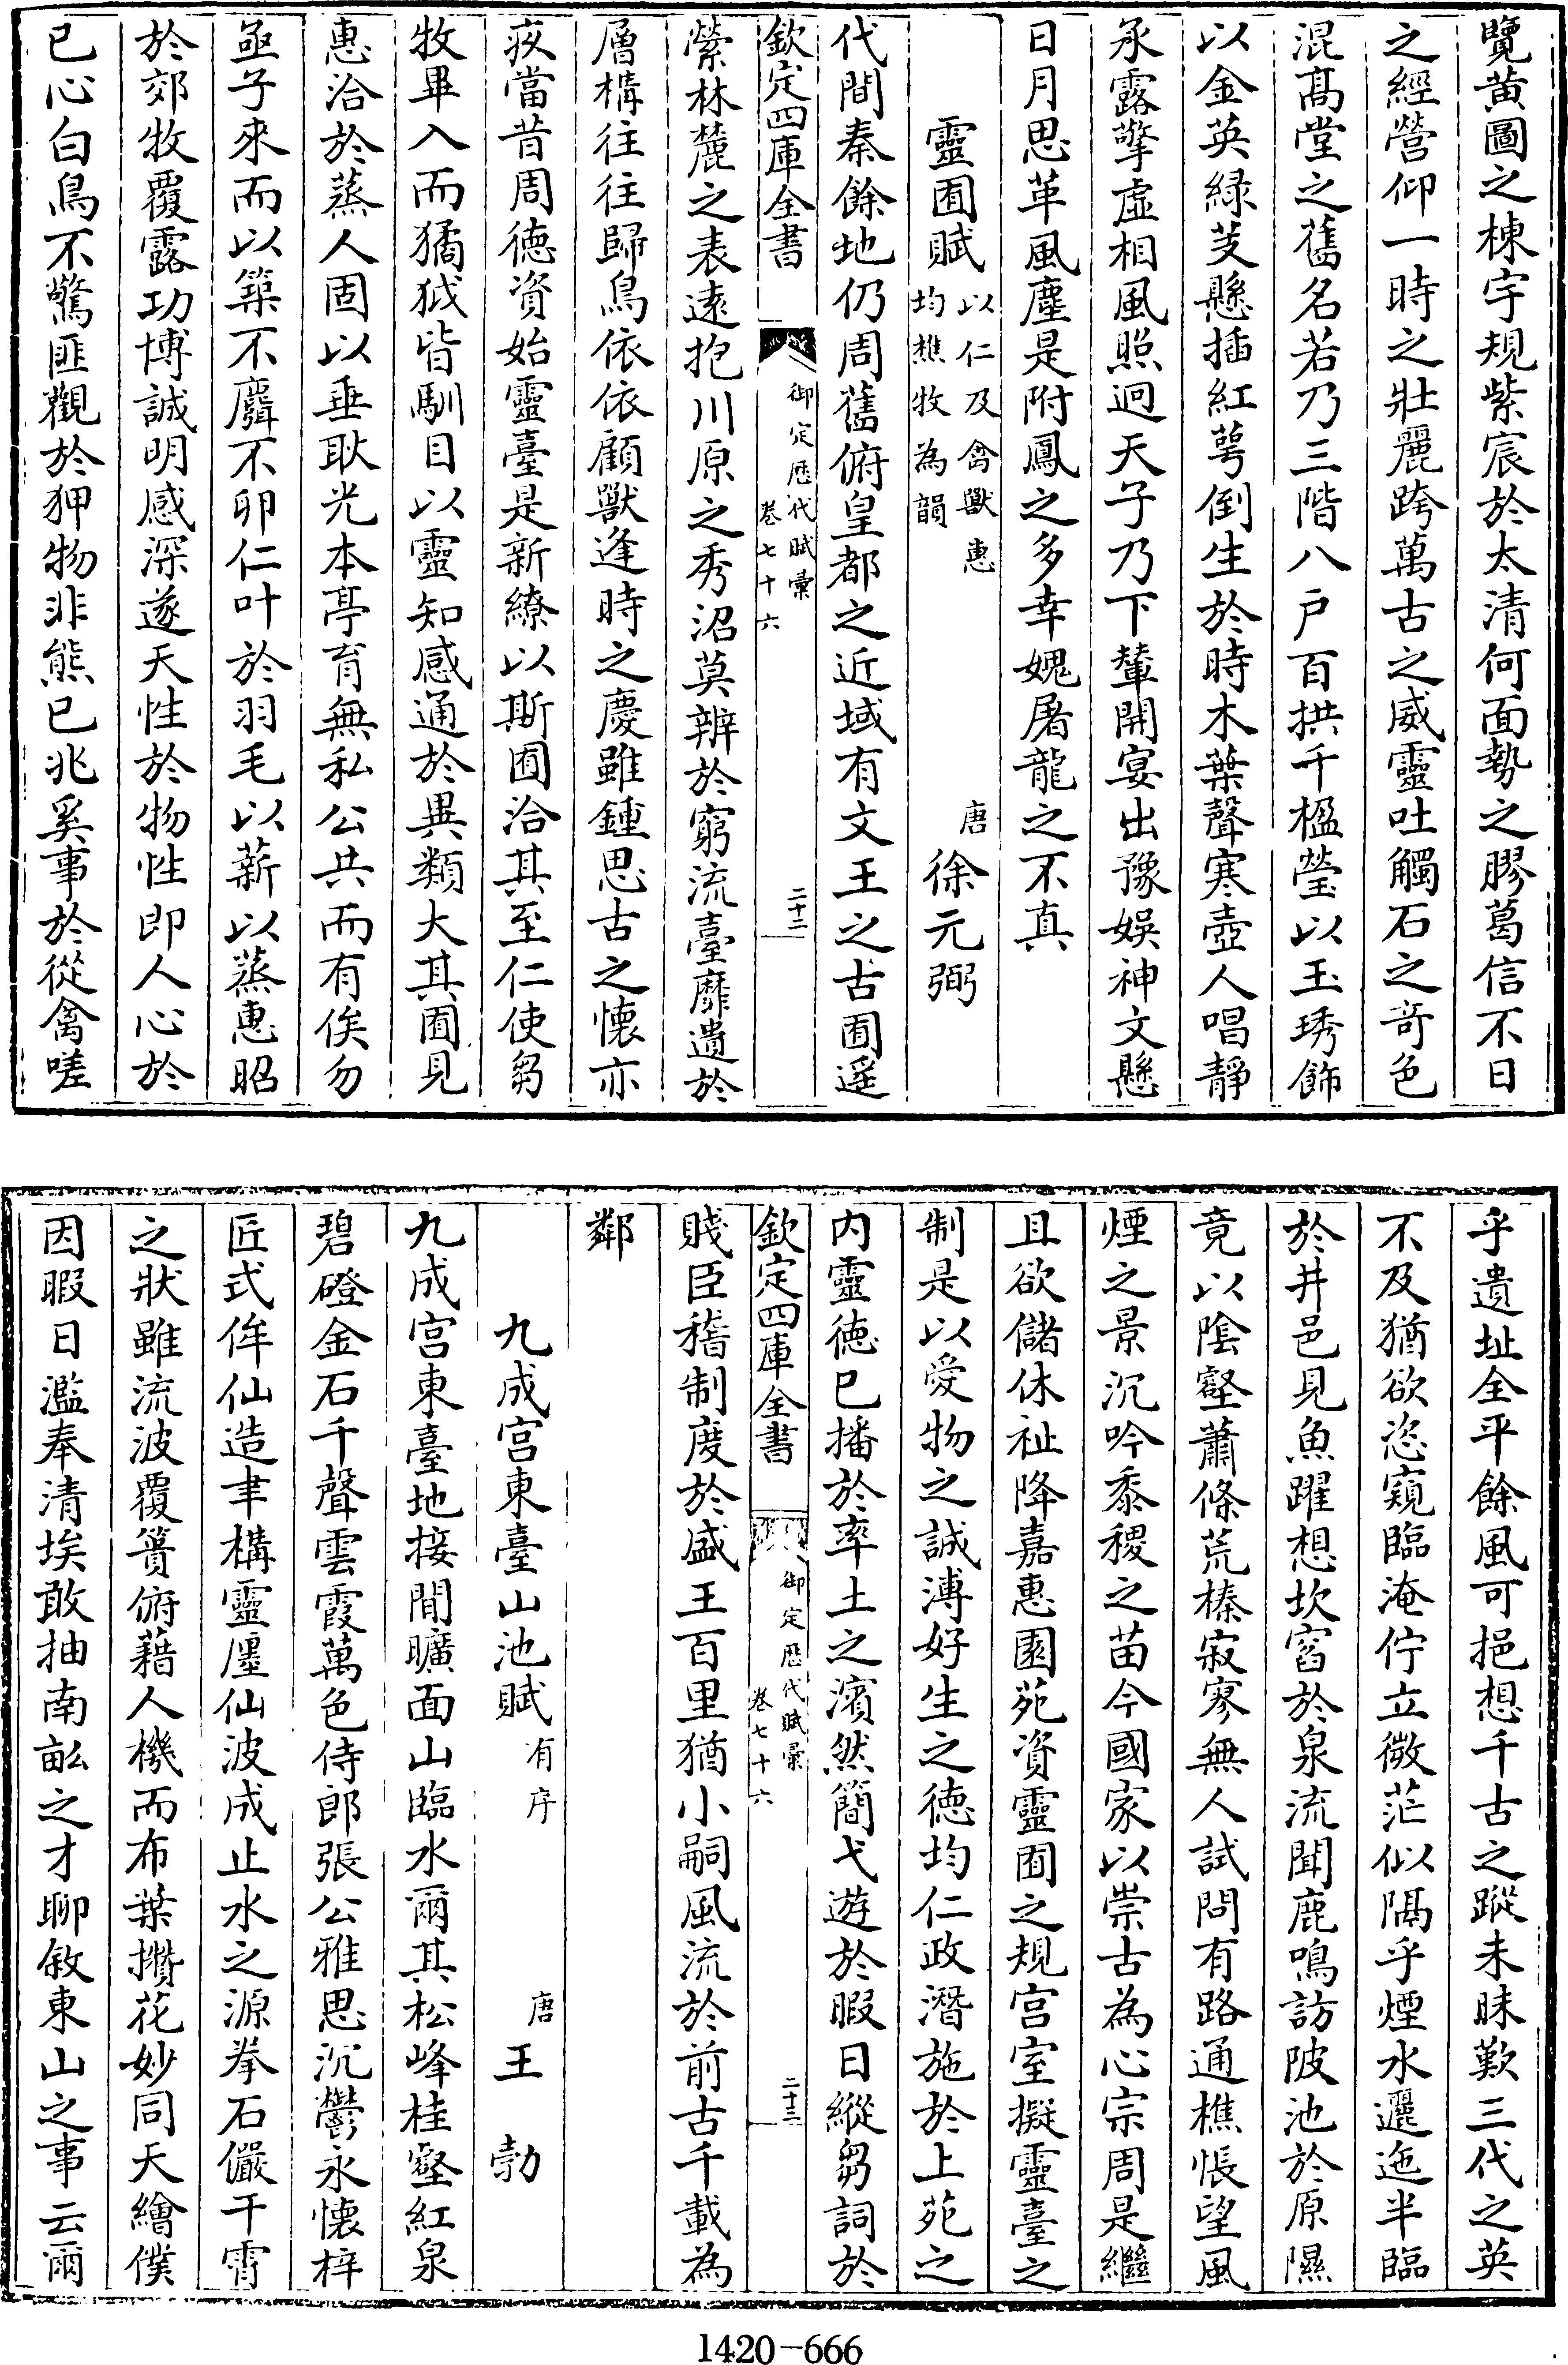 覽黃圖之棟宇規紫宸於太清何面勢之膠葛信不日
之經營仰一時之壯麗跨萬古之威靈吐觸石之竒色
混髙堂之舊名若乃三階八户百拱千楹瑩以玉琇飾
以金英緑芰懸插紅蕚倒生於時木葉聲寒壺人唱靜
承露擎虚相風照迥天子乃下輦開宴出豫娱神文懸
日月思革風塵是附鳳之多幸媿屠龍之不真
靈囿賦以仁及禽獸惠均樵牧為韻 唐徐元弼
代間秦餘地仍周舊俯皇都之近域有文王之古囿遥
欽定四庫全書 御定歴代賦彙 卷七十六 二十二
縈林麓之表逺抱川原之秀沼莫辨於窮流臺靡遺於
層構往往歸鳥依依顧獸逢時之慶雖鍾思古之懷亦
疚當昔周徳資始靈臺是新繚以斯囿洽其至仁使芻
牧畢入而獝狘皆馴目以靈知感通於異類大其囿見
惠洽於蒸人固以垂耿光本亭育無私公共而有俟勿
亟子來而以築不麛不卵仁叶於羽毛以薪以蒸惠昭
於郊牧覆露功博誠明感深遂天性於物性即人心於
已心白鳥不驚匪觀於狎物非熊已兆奚事於從禽嗟
乎遺址全平餘風可挹想千古之蹤未昧歎三代之英
不及猶欲恣窺臨淹佇立微茫似隔乎煙水邐迤半臨
於井邑見魚躍想坎窞於泉流聞鹿鳴訪陂池於原隰
竟以陰壑蕭條荒榛寂寥無人試問有路通樵悵望風
煙之景沉吟黍稷之苗今國家以崇古為心宗周是繼
且欲儲休祉降嘉惠園苑資靈囿之規宫室擬靈臺之
制是以愛物之誠溥好生之徳均仁政潛施於上苑之
内靈徳已播於率土之濱然簡弋遊於暇日縱芻詞於
欽定四庫全書 御定歴代賦彙 卷七十六 二十三
賤臣稽制度於盛王百里猶小嗣風流於前古千載為
鄰
九成宫東臺山池賦有序 唐王勃
九成宫東臺地接閒曠面山臨水爾其松峰桂壑紅泉
碧磴金石千聲雲霞萬色侍郎張公雅思沉鬱永懷梓
匠式侔仙造聿構靈廛仙波成止水之源拳石儼干霄
之狀雖流波覆簣俯藉人機而布葉攢花妙同天繪僕
因暇日濫奉清埃敢抽南畝之才聊敘東山之事云爾
1420-666